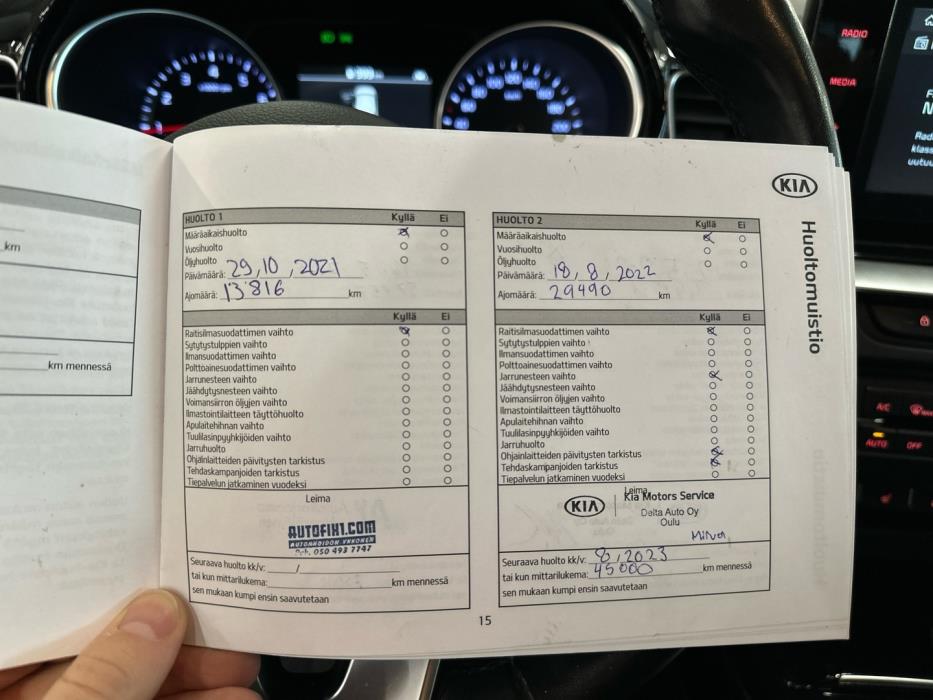 RADIO
MEDIA
KIA
Huoltomuistio
km
km mennessä
HUOLTO 1 Kyllä Ei
Määräaikaishuolto
Vuosihuolto
Öljyhuolto
Päivämäärä: 29,10,2021
Ajomäärä: 13816 km
Kyllä Ei
Raitisilmasuodattimen vaihto
Sytytystulppien vaihto
Ilmansuodattimen vaihto
Polttoainesuodattimen vaihto
Jarrunesteen vaihto
Jäähdytysnesteen vaihto
Voimansiirron öljyjen vaihto
Ilmastointilaitteen täyttöhuolto
Apulaitehihnan vaihto
Tuulilasinpyyhkijöiden vaihto
Jarruhuolto
Ohjainlaitteiden päivitysten tarkistus
Tehdaskampanjoiden tarkistus
Tiepalvelun jatkaminen vuodeksi
Leima
AUTOFIX1.COM
AUTONHOIDON YKKÖNEN
Puh. 050 493 7747
Seuraava huolto kk/v: /
tai kun mittarilukema: km mennessä
sen mukaan kumpi ensin saavutetaan
HUOLTO 2 Kyllä Ei
Määräaikaishuolto
Vuosihuolto
Öljyhuolto
Päivämäärä: 18,8,2022
Ajomäärä: 29490 km
Kyllä Ei
Raitisilmasuodattimen vaihto
Sytytystulppien vaihto
Ilmansuodattimen vaihto
Polttoainesuodattimen vaihto
Jarrunesteen vaihto
Jäähdytysnesteen vaihto
Voimansiirron öljyjen vaihto
Ilmastointilaitteen täyttöhuolto
Apulaitehihnan vaihto
Tuulilasinpyyhkijöiden vaihto
Jarruhuolto
Ohjainlaitteiden päivitysten tarkistus
Tehdaskampanjoiden tarkistus
Tiepalvelun jatkaminen vuodeksi
Leima
KIA Kia Motors Service
Delta Auto Oy
Oulu
Seuraava huolto kk/v: 8,2023
tai kun mittarilukema: 45000 km mennessä
sen mukaan kumpi ensin saavutetaan
15
A/C
AUTO OFF